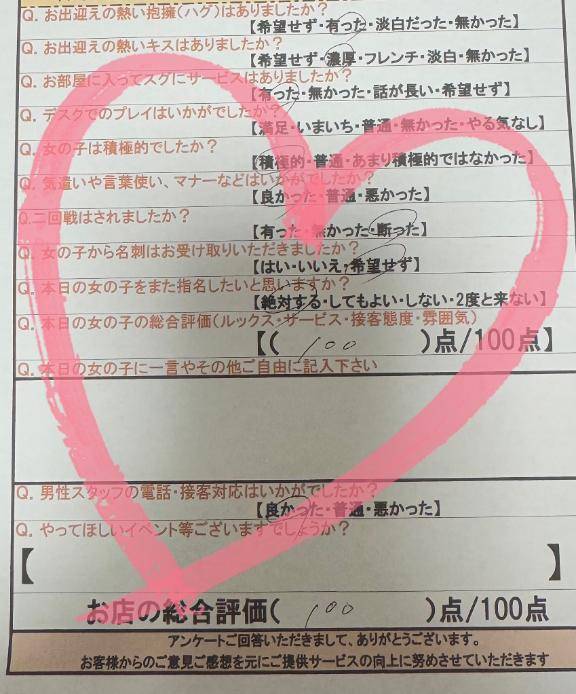 Q. お出迎えの熱い抱擁(ハグ)はありましたか？
【希望せず・有った・淡白だった・無かった】
Q. お出迎えの熱いキスはありましたか？
【希望せず・濃厚・フレンチ・淡白・無かった】
Q. お部屋に入ってスグにサービスはありましたか？
【有った・無かった・話が長い・希望せず】
Q. デスクでのプレイはいかがでしたか？
【満足・いまいち・普通・無かった・やる気なし】
Q. 女の子は積極的でしたか？
【積極的・普通・あまり積極的ではなかった】
Q. 気遣いや言葉使い、マナーなどはいかがでしたか？
【良かった・普通・悪かった】
Q.二回戦はされましたか？
【有った・無かった・断った】
Q. 女の子から名刺はお受け取りいただきましたか？
【はい・いいえ・希望せず】
Q. 本日の女の子をまた指名したいと思いますか？
【絶対する・してもよい・しない・2度と来ない】
Q. 本日の女の子の総合評価(ルックス・サービス・接客態度・雰囲気)
【( 100 )点/100点】
Q. 本日の女の子に一言やその他ご自由に記入下さい
Q. 男性スタッフの電話・接客対応はいかがでしたか？
【良かった・普通・悪かった】
Q. やってほしいイベント等ございますでしょうか？
【 】
お店の総合評価( 100 )点/100点
アンケートご回答いただきまして、ありがとうございます。
お客様からのご意見ご感想を元にご提供サービスの向上に努めさせていただきます